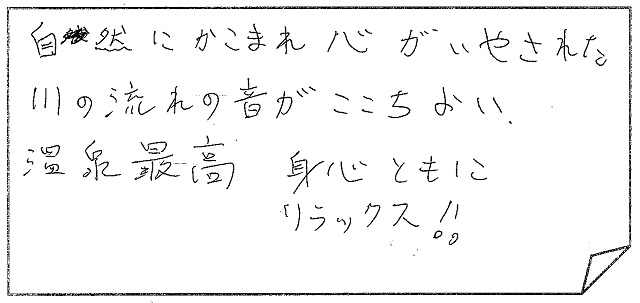 自然にかこまれ心がいやされた
川の流れの音がここちよい.
温泉最高 身心ともに
リラックス!!